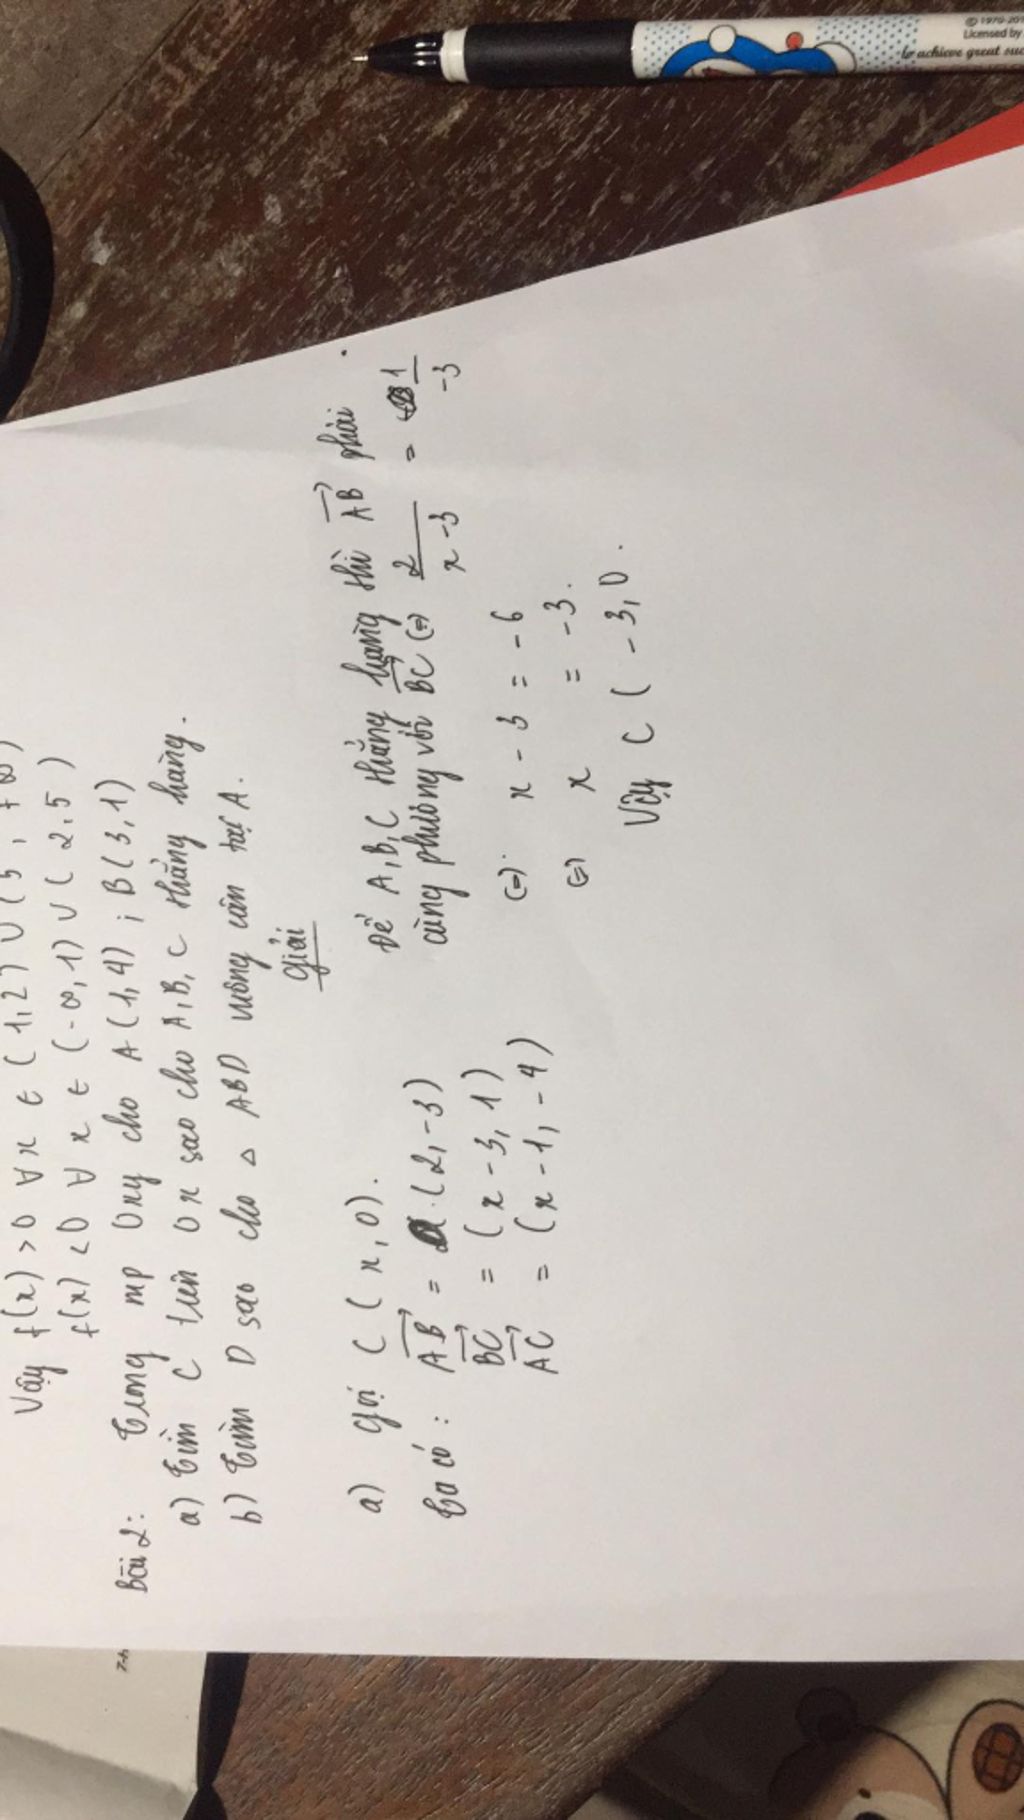 Vậy f(x) > 0 ∀ x ∈ (1,2) ∪ (5, +∞)
f(x) < 0 ∀ x ∈ (-∞, 1) ∪ (2,5)
Bài 2: Trong mp Oxy cho A(1,4) ; B(3,1)
a) Tìm C trên Ox sao cho A,B,C thẳng hàng.
b) Tìm D sao cho Δ ABD vuông cân tại A.
Giải
a) Gọi C (x,0).
Ta có: AB = (2,-3)
BC = (x-3, 1)
AC = (x-1, -4)
Để A,B,C thẳng hàng thì AB phải
cùng phương với BC (=) 2/x-3 = 1/-3
(=) x - 3 = -6
(=) x = -3.
Vậy C (-3,0.
© 1970-20
Licensed by
to achieve great suc